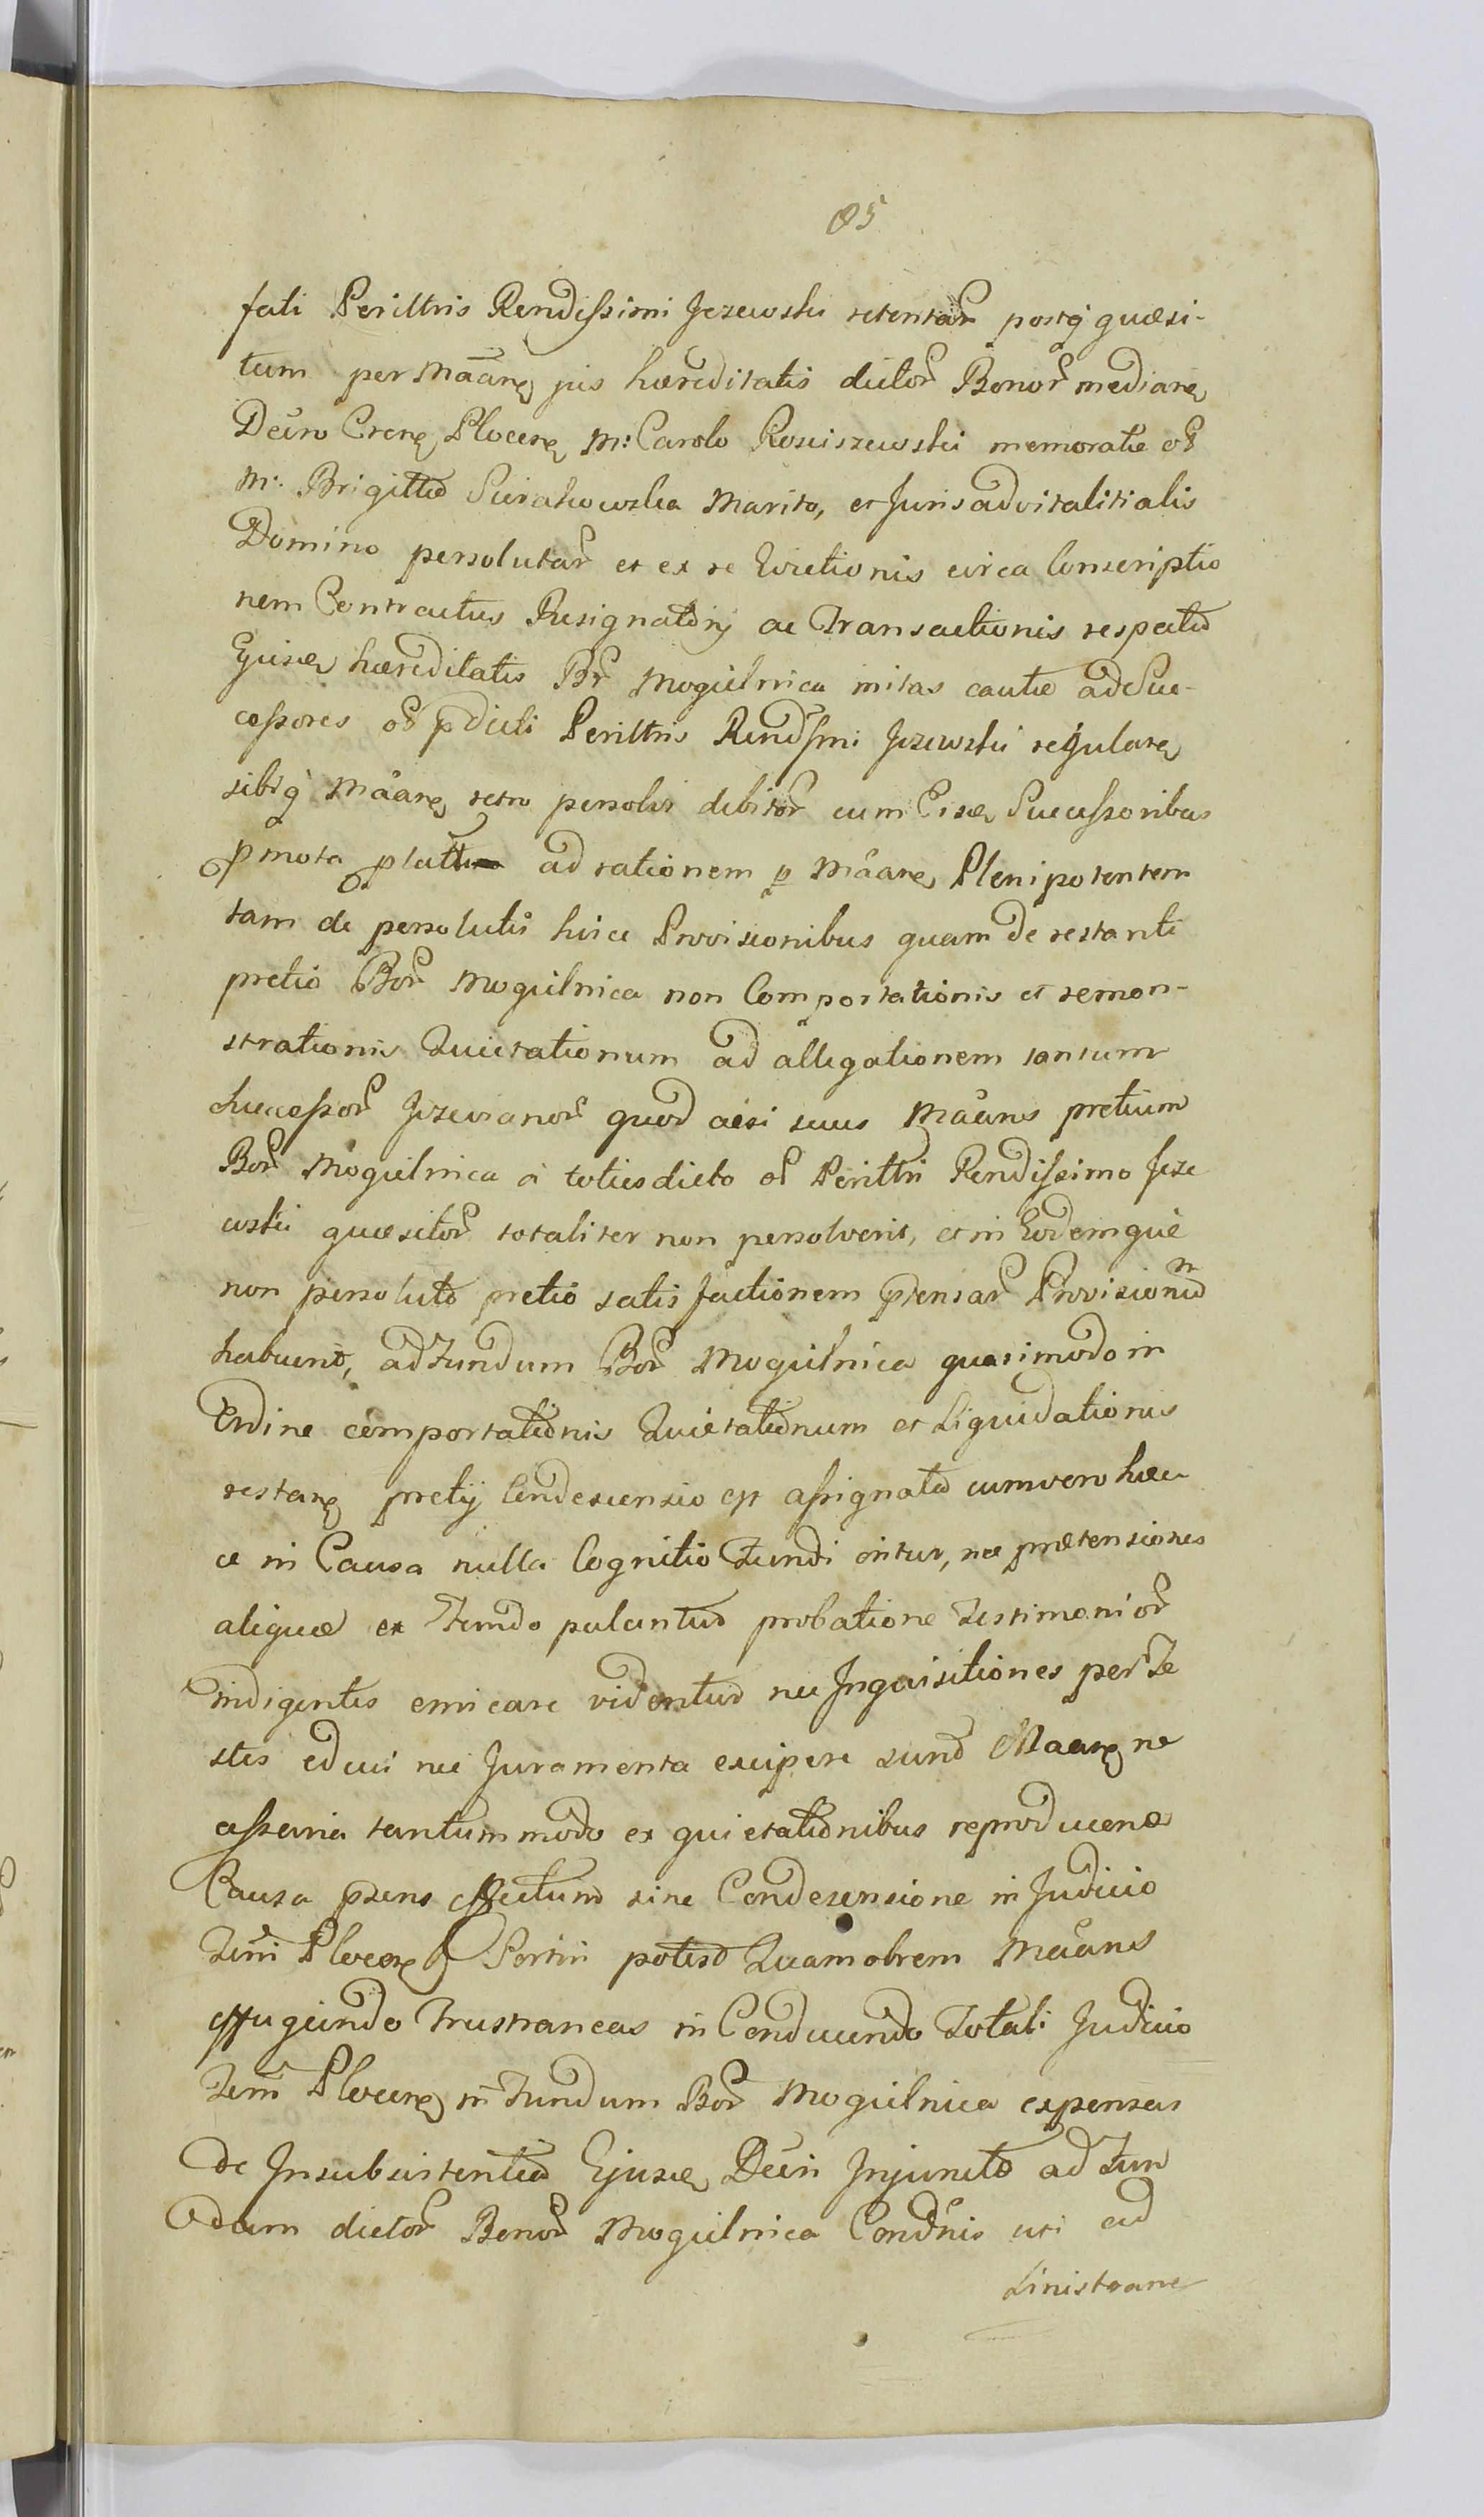 85
fati Perillris Rendissimi Jezewski retentar postq quæsi-
tum per Mâcans jus hæreditatis dictor Bonor mediane
Decro Crens Plocens M: Carolo Rosciszewski memoratæ ol
M: Brigittæ Sierakowska Marito, et Juris advitalitialis
Domino persolutar et ex re Evictionis circa Conscriptio
nem Contractus Resignatorij ac Transactionis respectu
Ejusd hæreditatis Br Mogielnica initas cautæ ad Suc-
cessores ol pdicti Perilltris Rendssmi Jezewski regulare
sibiq Mâcane retro persolvi debitor cum Eisd Successoribus
pmota ad rationem p Mâcane Plenipotentem
tam de persolutis hisce Provisionibus quam de restanti
pretio Bor Mogielnica non Comportationis et remon-
strationis Quietationum ad allegationem tantum
Successor Jezevianor quod acsi suus Mâcans pretium
Bor Mogielnica à toties dicto ol Perilltri Rendissimo Jeze
wski quæsitor totaliter non persolverit, et in Eodemque
non persoluto pretio satisfactionem ptensar Provisionu
habuerit, ad Fundum Bor Mogielnica quasimodo in
Ordine comportationis Quietationum et Liquidationis
restans pretij Condescensio est assignata cum vero hæc
ce in Causa nulla Cognitio Fundi oritur, nec prætensiones
aliquæ ex Fundo palantur probatione Testimonior
indigentes emicare videntur nec Inquisitiones per Te
stes educi nec Juramenta excipere sunt Mâcane ne
cessaria tantummodo ex quietationibus reproducend
Causa psens effectum sine Condescensione in Judicio
Trni Plocens Sortiri potest Quamobrem Mâcans
effugiendo frustraneas in Conducendo Totali Judicio
Trni Plocens in Fundum Bor Mogielnica expensas
de Insubsistentia Ejusd Decri Injuncto ad Fun
dum dictor Bonor Mogielnica Condnis uti ad